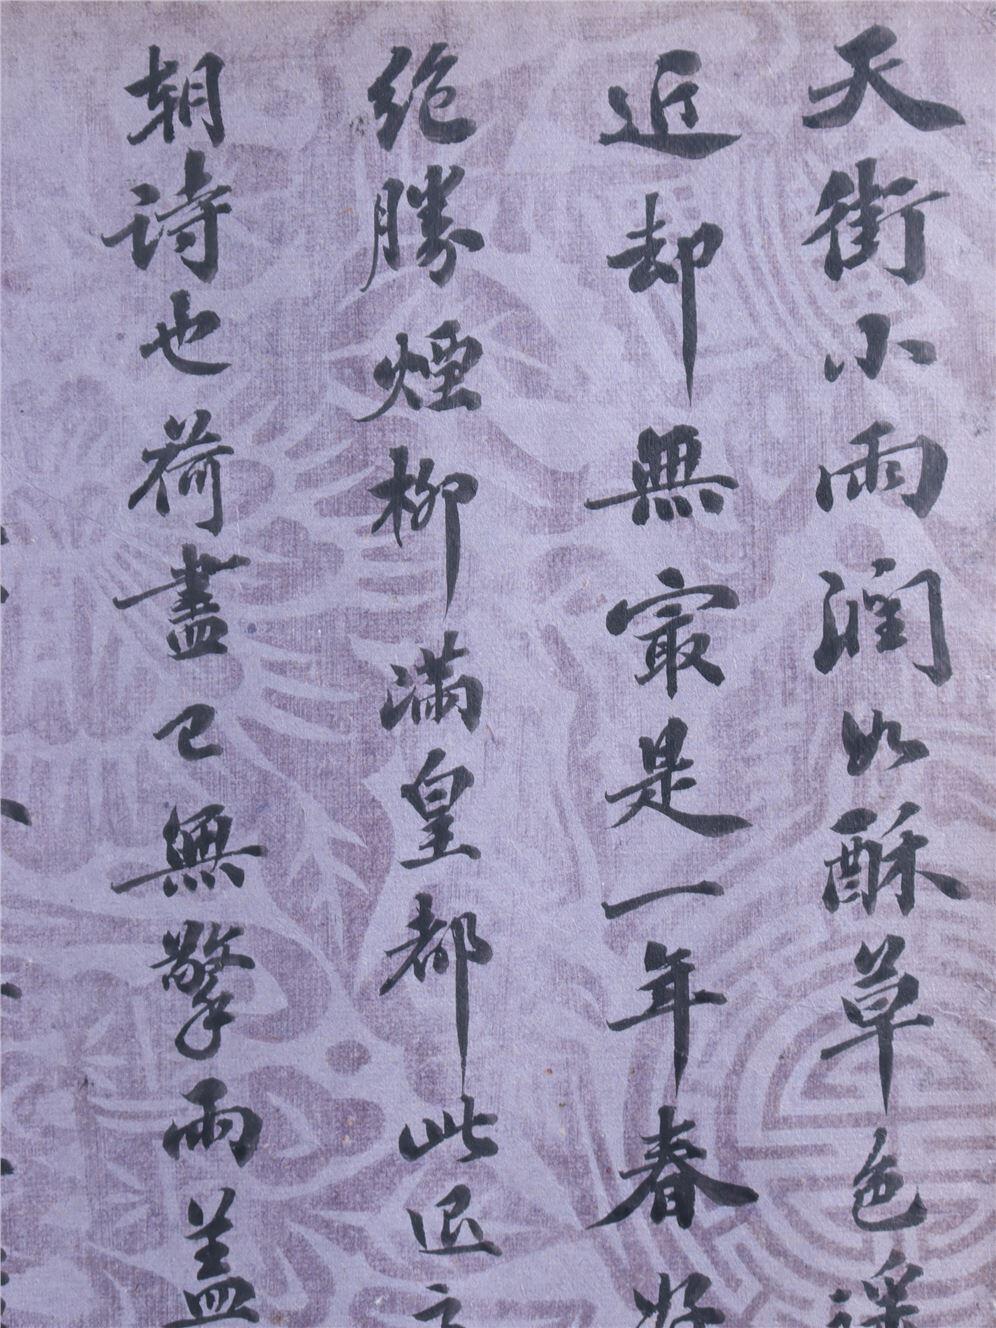 天街小雨潤如酥草色遥
近却無最是一年春好
絶勝煙柳滿皇都此退之
朝诗也荷盡已無擎雨盖